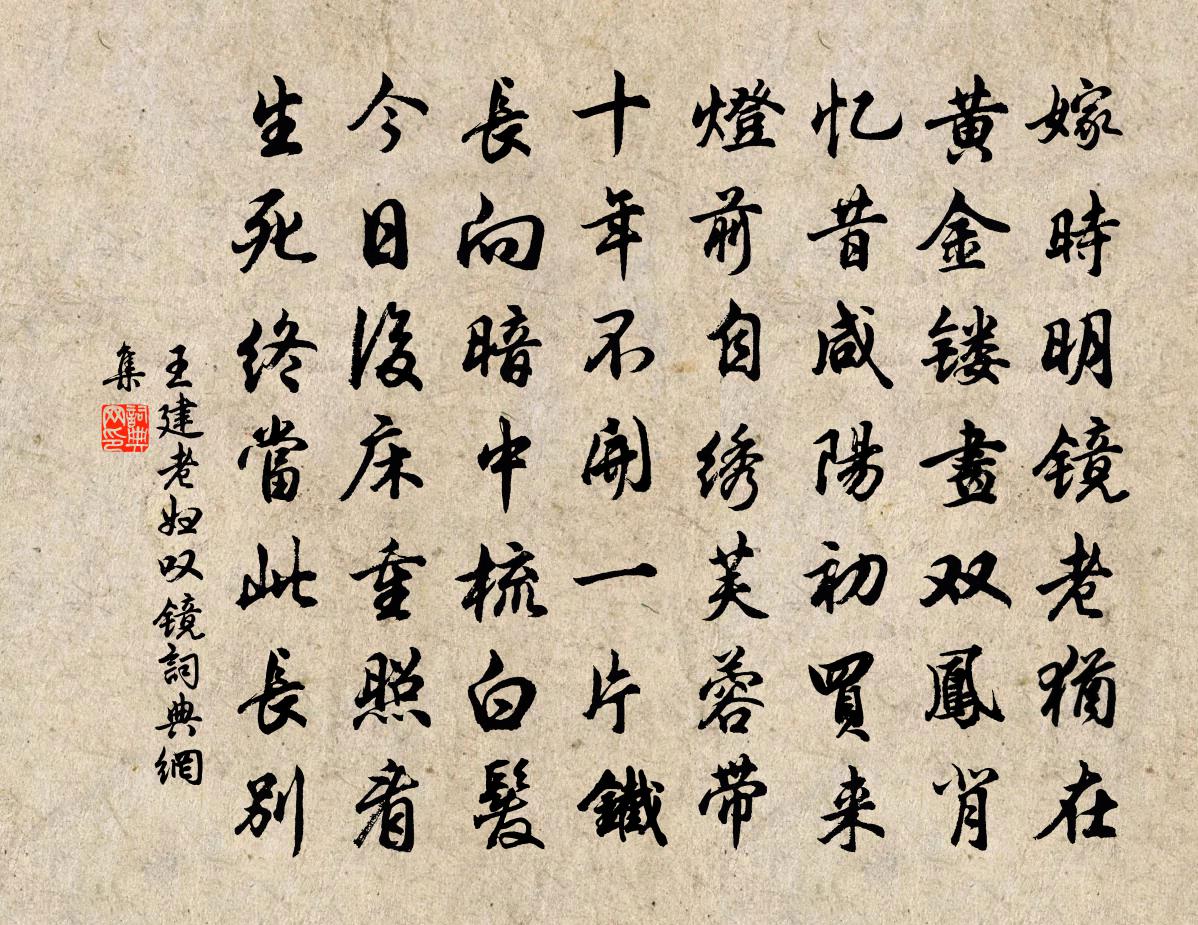 嫁時明镜老猶在
黄金镂畫双鳳背
忆昔咸陽初買来
燈前自绣芙蓉带
十年不開一片鐵
長向暗中梳白髮
今日後床重照看
生死終當此長别
王建老妇叹镜詞典網
集
詞典
网印